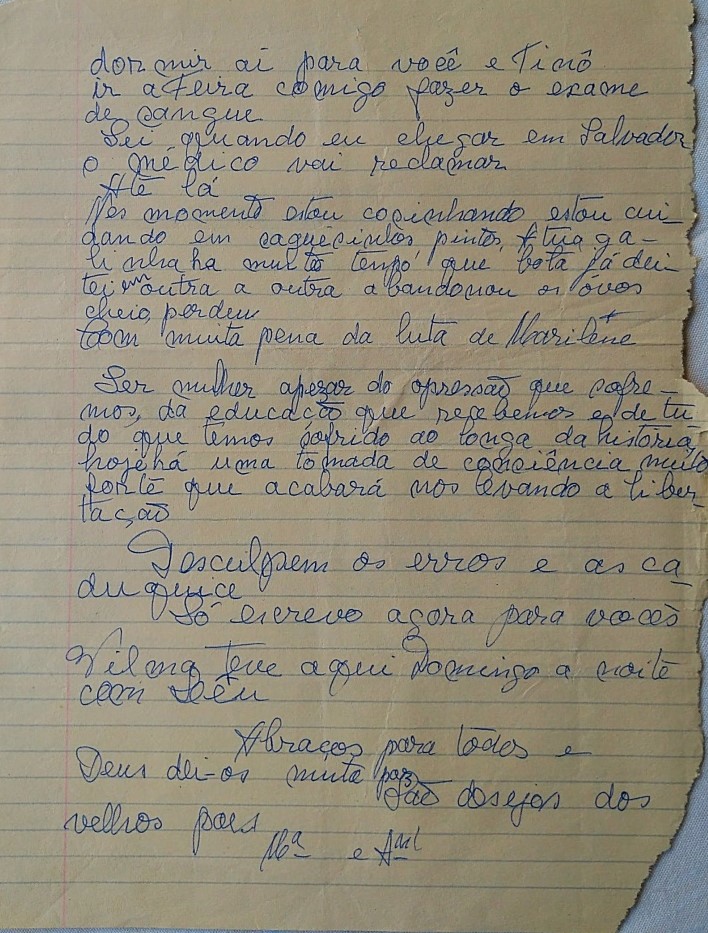 dormir aí para você e Tinô
ir a Feira comigo fazer o exame
de sangue
Sei quando eu chegar em Salvador
o médico vai reclamar
Até lá
Nes momento estou cosinhando estou cui-
dando em pintos, A tua ga-
linha ha muito tempo que bota já dei-
tei em outra a outra abandonou os óvos
cheio, perdeu
Com muita pena da luta de Marilene
Ser mulher apezar do opressão que sofre-
mos, da educação que recebemos e de tu-
do que temos sofrido ao longa da história,
hoje há uma tomada de consciência muito
forte que acabará nos levando a liber-
tação
Desculpem os erros e as ca-
duquice
Só escrevo agora para vocês
Vilma teve aqui Domingo a noite
com
Abraços para todos e
Deus dei-os muita paz
São desejos dos
velhos pais
Mª e